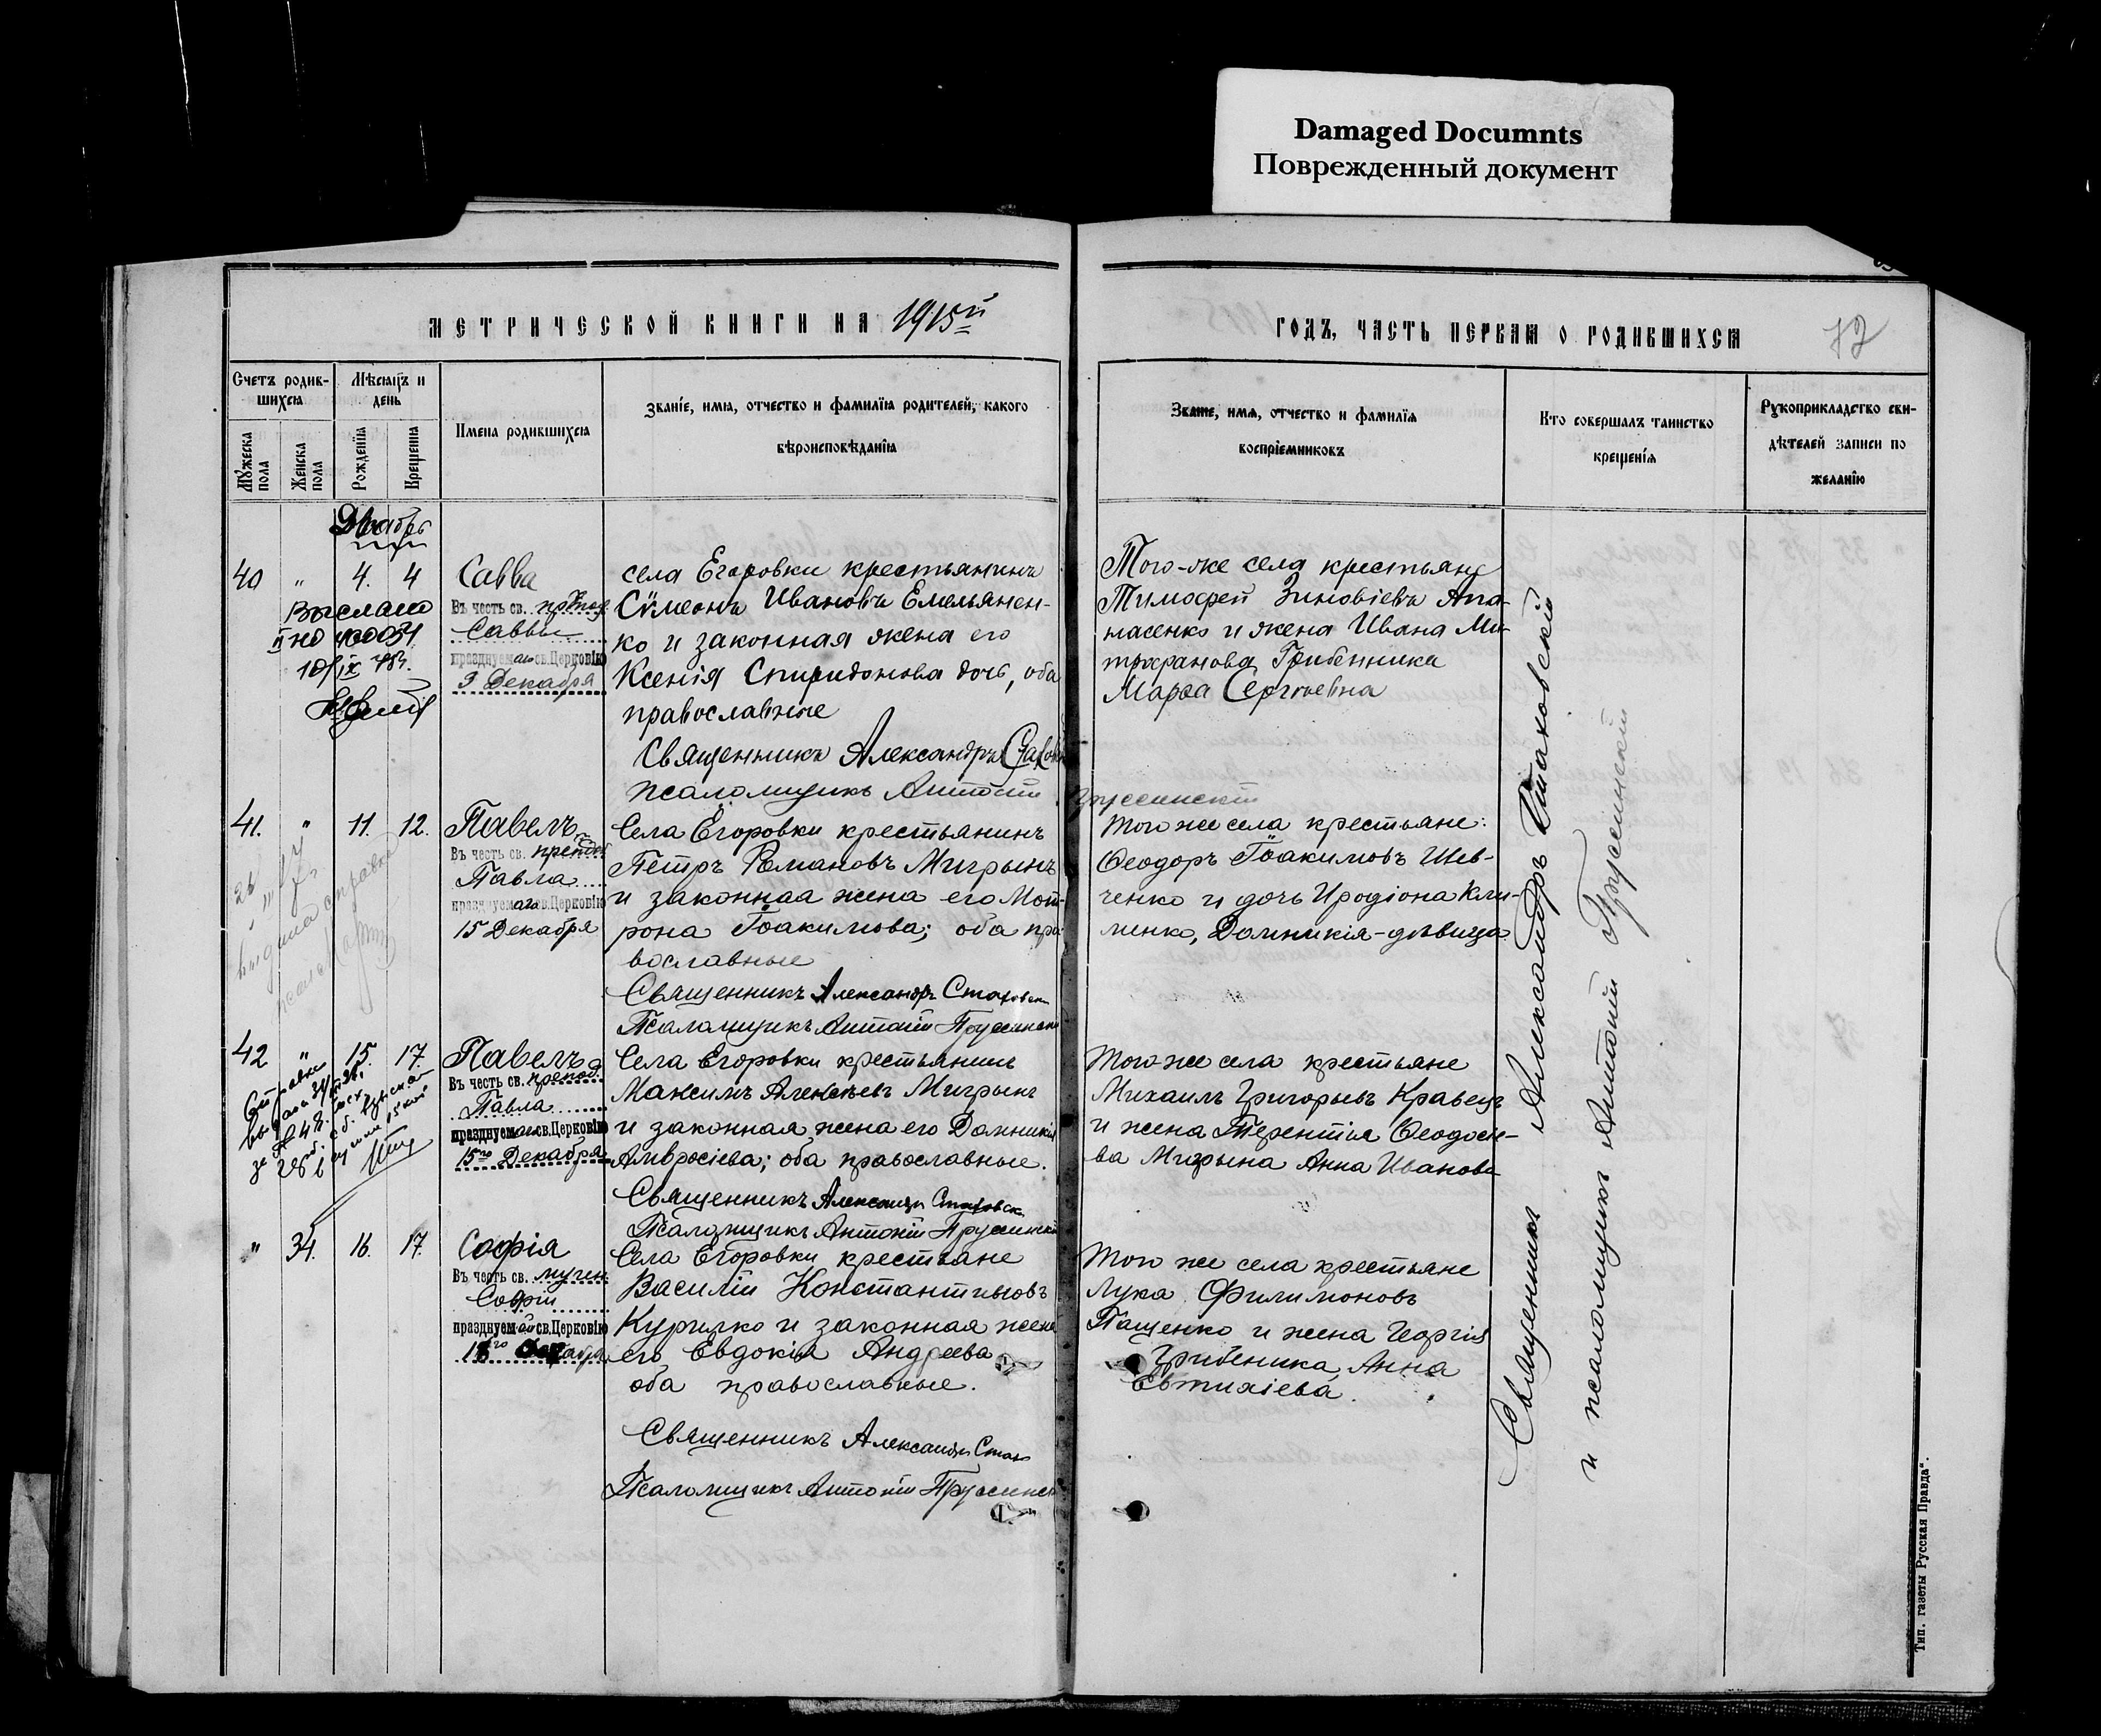 Damaged Documnts
Поврежденный документ
МЕТРИЧЕСКОЙ КНИГИ НА 1915й
ГОДЪ, ЧАСТЬ ПЕРВАЯ О РОДИВШИХСЯ
Счетъ родив-
шихся
Мѣсяцъ и
день
Имена родившихся
Званіе, имя, отчество и фамилія родителей, какого
вѣроисповѣданія
Званіе, имя, отчество и фамилія
воспріемниковъ
Кто совершалъ таинство
крещенія
Рукоприкладство сви-
дѣтелей записи по
желанію
Мужеска
пола
Женска
пола
Рожденія
Крещенія
Декабрь
40 " 4. 4 Савва
Въ честь св. препод.
Саввы
празднуемаго св. Церковію
3 Декабря
Выслано
села Егоровки крестьянинъ
Сѵмеонъ Ивановъ Емельянен-
ко и законная жена его
Ксенія Спиридонова дочь, оба
православные
Священникъ Александръ Стаковскій
Псаломщикъ Антоній Прусинскій
Того-же села крестьяне
Тимоѳей Зиновіевъ Апа-
насенко и жена Ивана Ми-
трофанова Грибенника
Марѳа Сергѣевна
41. " 11. 12. Павелъ
Въ честь св. препод.
Павла
празднуемаго св. Церковію
15 Декабря
выдана справка
Села Егоровки крестьянинъ
Петръ Романовъ Мигрынъ
и законная жена его Мот-
рона Іоакимова; оба пра-
вославные
Священникъ Александръ Стаковскій
Псаломщикъ Антоній Прусинскій
Того же села крестьяне:
Ѳеодоръ Іоакимовъ Шев-
ченко и дочь Иродіона Кли-
менко, Домникія-дѣвица
42 " 15. 17. Павелъ
Въ честь св. препод.
Павла
празднуемаго св. Церковію
15го Декабря
Справка
выдана
Села Егоровки крестьянинъ
Максимъ Алексѣевъ Мигрынъ
и законная жена его Домникія
Амвросіева; оба православные.
Священникъ Александръ Стаковск
Псаломщикъ Антоній Прусинскій
Того же села крестьяне
Михаилъ Григорьевъ Кравецъ
и жена Терентія Ѳеодосіе-
ва Мигрына Анна Иванова
" 34. 16. 17. Софія
Въ честь св. мучен.
Софіи
празднуемой св. Церковію
Села Егоровки крестьяне
Василій Константиновъ
Курилко и законная жена
его Евдокія Андреева
оба православные.
Священникъ Александръ Стак
Псаломщикъ Антоній Прусинск
Того же села крестьяне
Лука Филимоновъ
Пащенко и жена Георгія
Грибеника, Анна
Евтихіева.
Священникъ Александръ Стаковскій
и псаломщикъ Антоній Прусинскій
Тип. газеты Русская Правда".